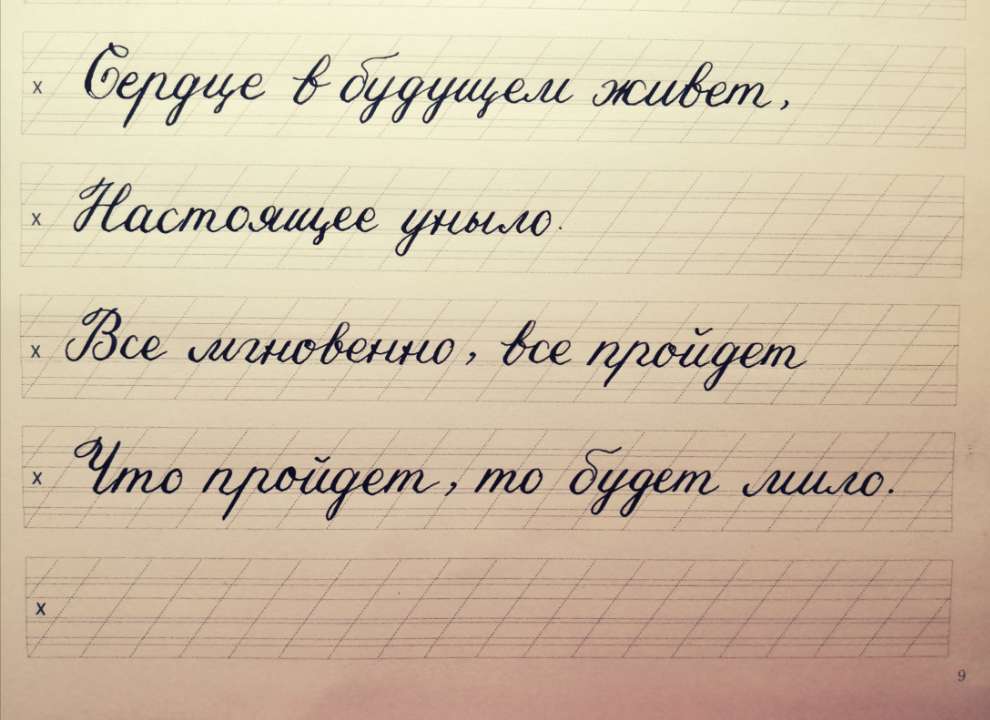 x Сердце в будущем живет,
x Настоящее уныло.
x Все мгновенно, все пройдет
x Что пройдет, то будет мило.
x
9